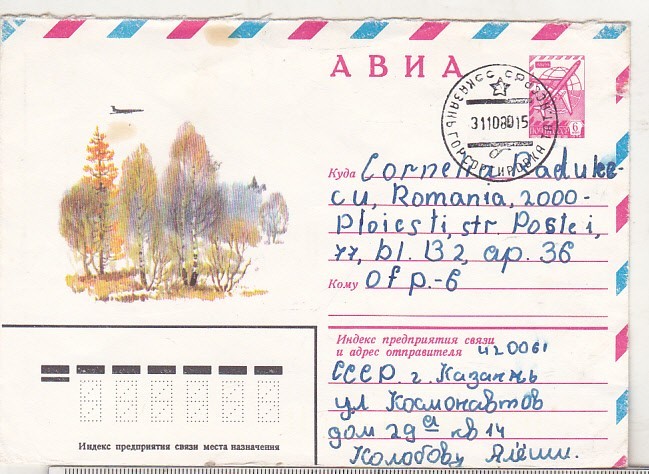 АВИА
КАЗАНЬ ГОРСОРТИРОВКА
3111080 15
6
Куда Cornelia Radules-
cu, Romania, 2000-
Ploiești, str. Poștei,
77, bl. B2, ap. 36
Кому Of p.-6
Индекс предприятия связи
и адрес отправителя 420061
СССР г. Казань
ул Космонавтов
дом 29 кв 14
Колобову Алёши.
Индекс предприятия связи места назначения